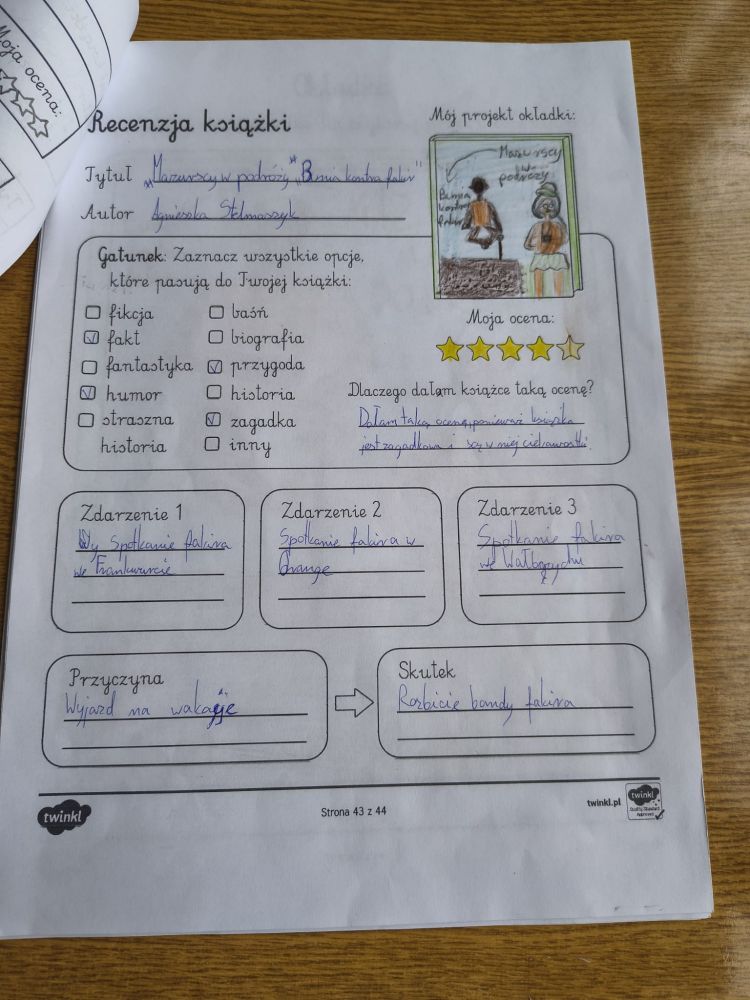 Moja ocena:
Recenzja książki
Mój projekt okładki:
Tytuł „Mazurscy w podróży" „Bunia kontra fakir"
Autor Agnieszka Stelmaszyk
Mazurscy
w
podróży
Bunia
kontra
fakir
Gatunek: Zaznacz wszystkie opcje,
które pasują do Twojej książki:
fikcja
fakt
fantastyka
humor
straszna
historia
baśń
biografia
przygoda
historia
zagadka
inny
Moja ocena:
Dlaczego dałam książce taką ocenę?
Dałam taką ocenę, ponieważ książka
jest zagadkowa i są w niej ciekawostki.
Zdarzenie 1
Spotkanie fakira
we Frankwurcie
Zdarzenie 2
Spotkanie fakira w
Orange
Zdarzenie 3
Spotkanie fakira
we Wałbrzychu
Przyczyna
Wyjazd na wakacje
Skutek
Rozbicie bandy fakira
twinkl
Strona 43 z 44
twinkl.pl
twinkl
Quality Standard
Approved